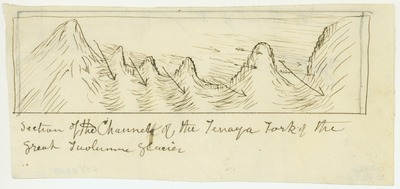 Section of the Channels of the Tenaya Fork of the
Great Tuolumne Glacier